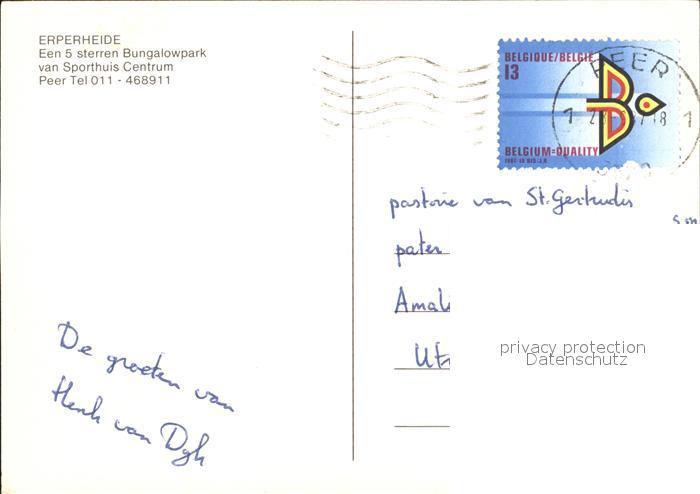 ERPERHEIDE
Een 5 sterren Bungalowpark
van Sporthuis Centrum
Peer Tel 011 - 468911
BELGIQUE/BELGIE
13
BELGIUM=QUALITY
PEER
pastorie van St. Gertrudis
pater
Amali
Utr
privacy protection
Datenschutz
De groeten van
Henk van Dyk